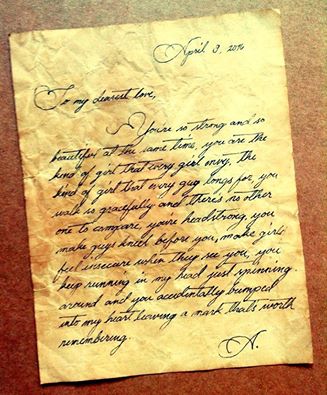 April 3, 2014
To my dearest love,
You're so strong and so
beautiful at the same time, you are the
kind of girl that every girl envy, the
kind of girl that every guy longs for, you
walk so gracefully and there's no other
one to compare, you're headstrong, you
make guys kneel before you, make girls
feel insecure when they see you, you
keep running in my head just spinning
around and you accidentally bumped
into my heart leaving a mark that's worth
remembering.
A.